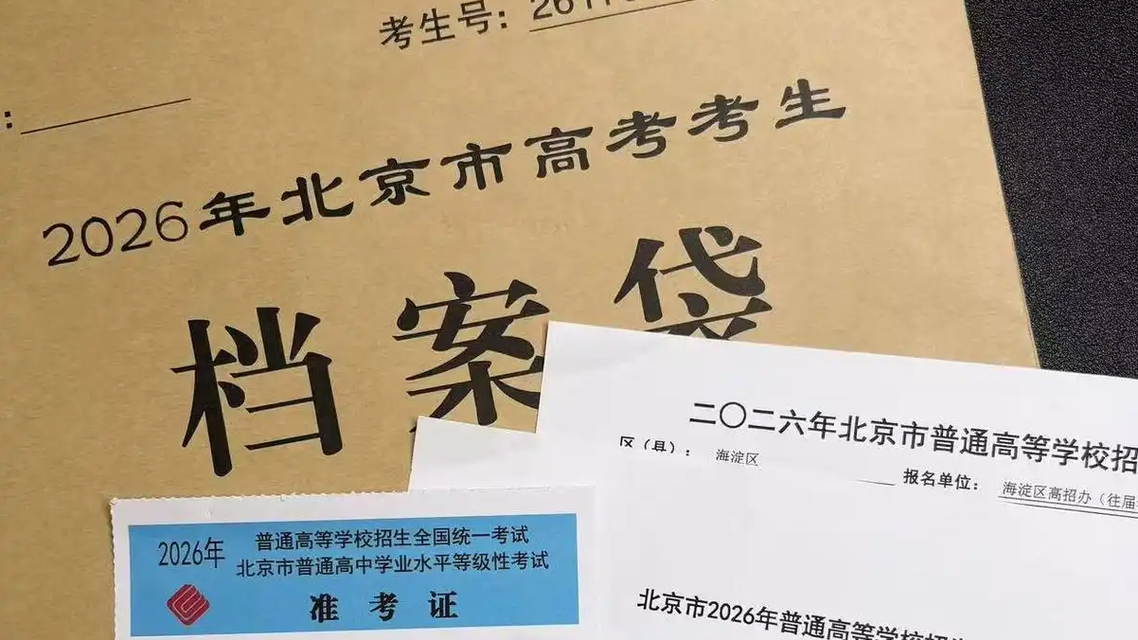 考生号：
2026年北京市高考考生
档案袋
二〇二六年北京市普通高等学校招
区（县）：海淀区
报名单位：海淀区高招办（往届
2026年
普通高等学校招生全国统一考试
北京市普通高中学业水平等级性考试
准考证
北京市2026年普通高等学校招生